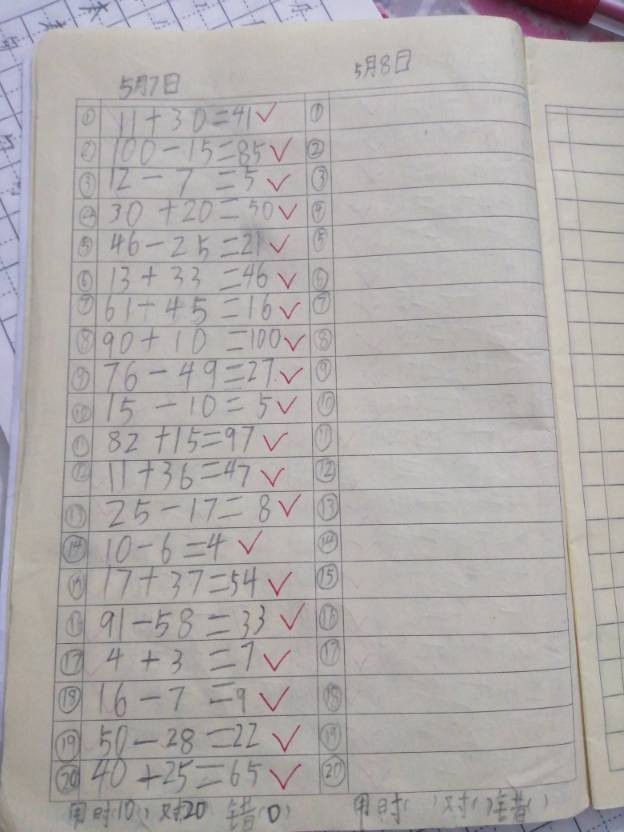 5月7日 5月8日
① 11+30=41 ①
② 100-15=85 ②
③ 12-7=5 ③
④ 30+20=50 ④
⑤ 46-25=21 ⑤
⑥ 13+33=46 ⑥
⑦ 61-45=16 ⑦
⑧ 90+10=100 ⑧
⑨ 76-49=27 ⑨
⑩ 15-10=5 ⑩
⑪ 82+15=97 ⑪
⑫ 11+36=47 ⑫
⑬ 25-17=8 ⑬
⑭ 10-6=4 ⑭
⑮ 17+37=54 ⑮
⑯ 91-58=33 ⑯
⑰ 4+3=7 ⑰
⑱ 16-7=9 ⑱
⑲ 50-28=22 ⑲
⑳ 40+25=65 ⑳
用时(10) 对20 错(0) 用时( ) 对( ) 错( )